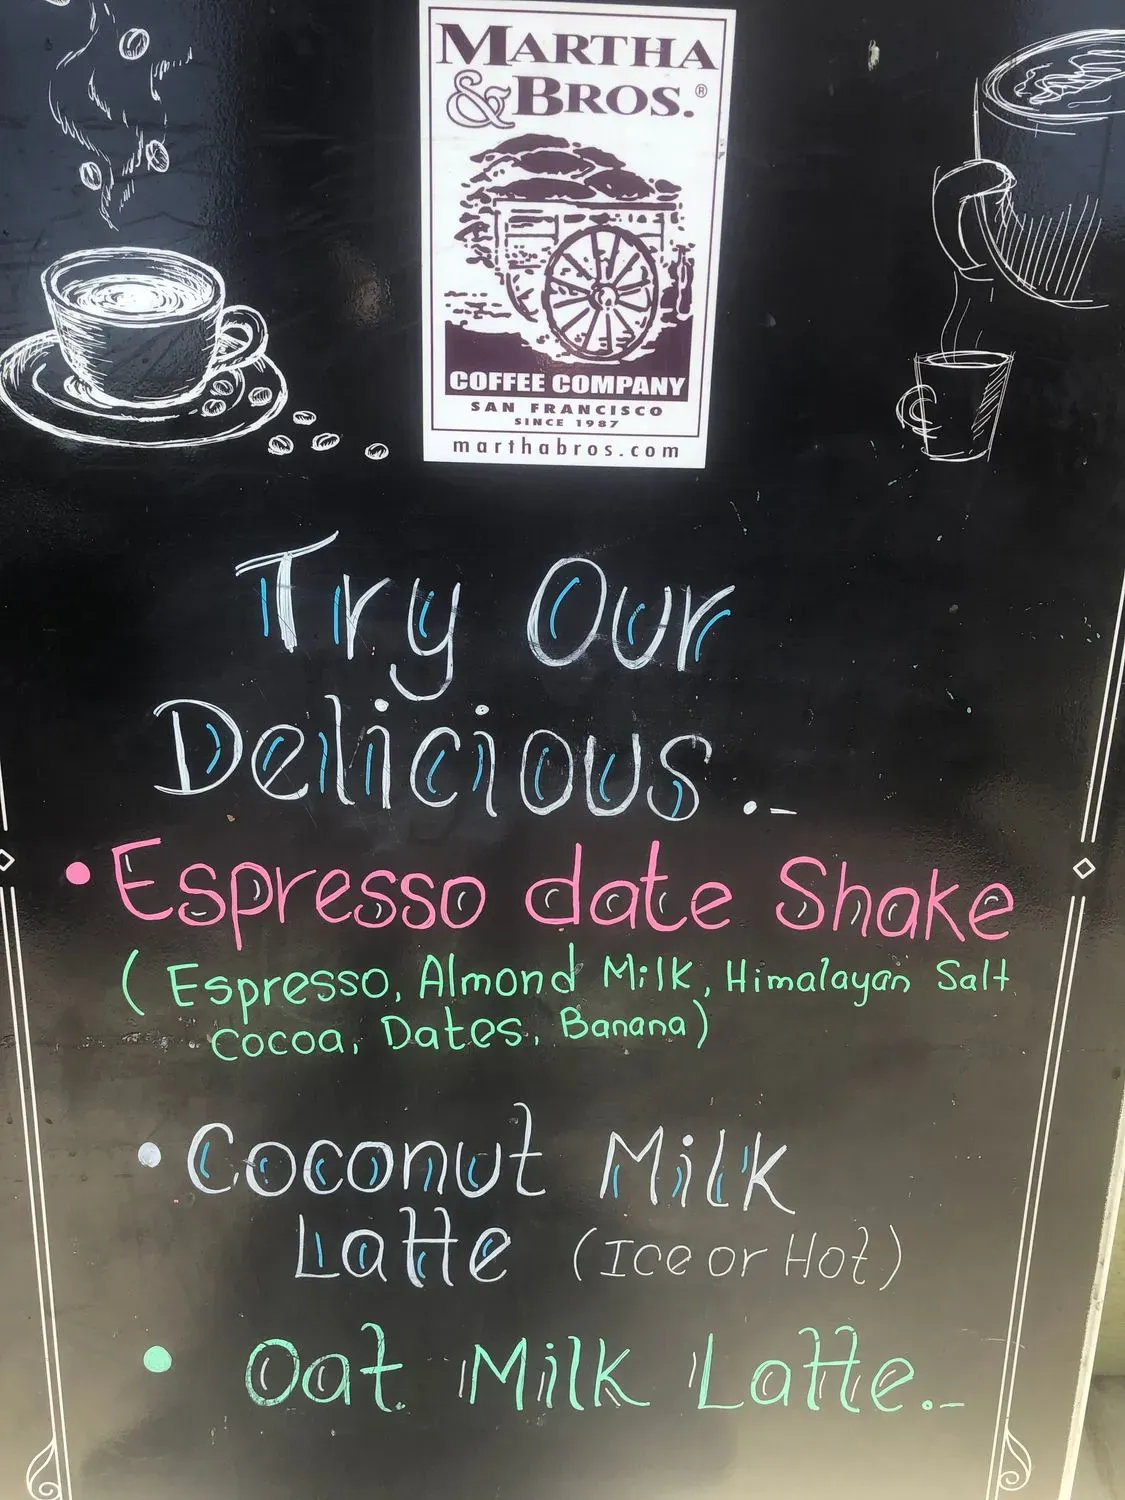 MARTHA
& BROS.®
COFFEE COMPANY
SAN FRANCISCO
SINCE 1987
marthabros.com
Try Our
Delicious.-
• Espresso date Shake
( Espresso, Almond Milk, Himalayan Salt
Cocoa, Dates, Banana)
• Coconut Milk
Latte (Ice or Hot)
• Oat Milk Latte.-